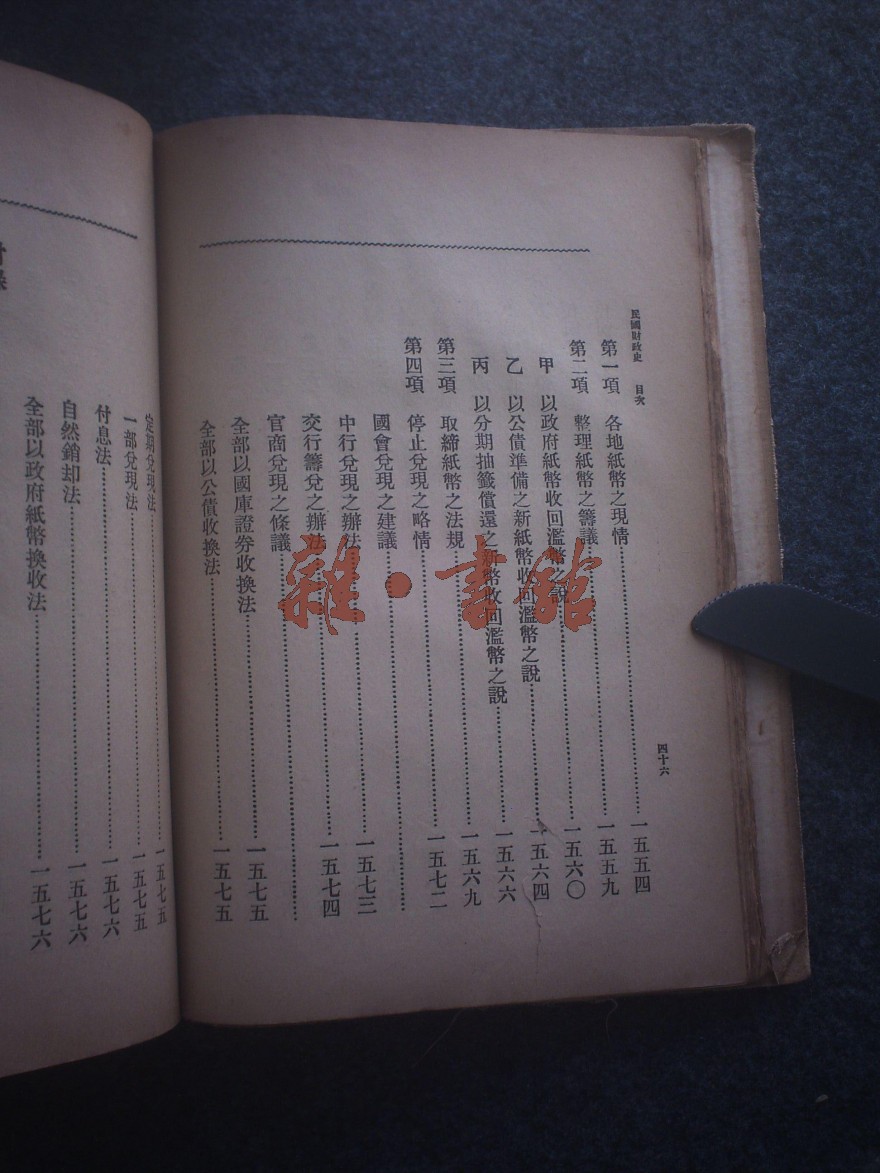 民國財政史 目次 四十六
第一項 各地紙幣之現情……一五五四
第二項 整理紙幣之籌議……一五五九
甲 以政府紙幣收回濫幣之說……一五六〇
乙 以公債準備之新紙幣收回濫幣之說……一五六四
丙 以分期抽籤償還之新幣收回濫幣之說……一五六六
第三項 取締紙幣之法規……一五六九
第四項 停止兌現之略情……一五七二
國會兌現之建議……
中行兌現之辦法……一五七三
交行籌兌之辦法……一五七四
官商兌現之條議……
全部以國庫證券收換法……一五七五
全部以公債收換法……一五七五
定期兌現法……一五七五
一部兌現法……一五七五
付息法……一五七六
自然銷却法……一五七六
全部以政府紙幣換收法……一五七六
雜·書館